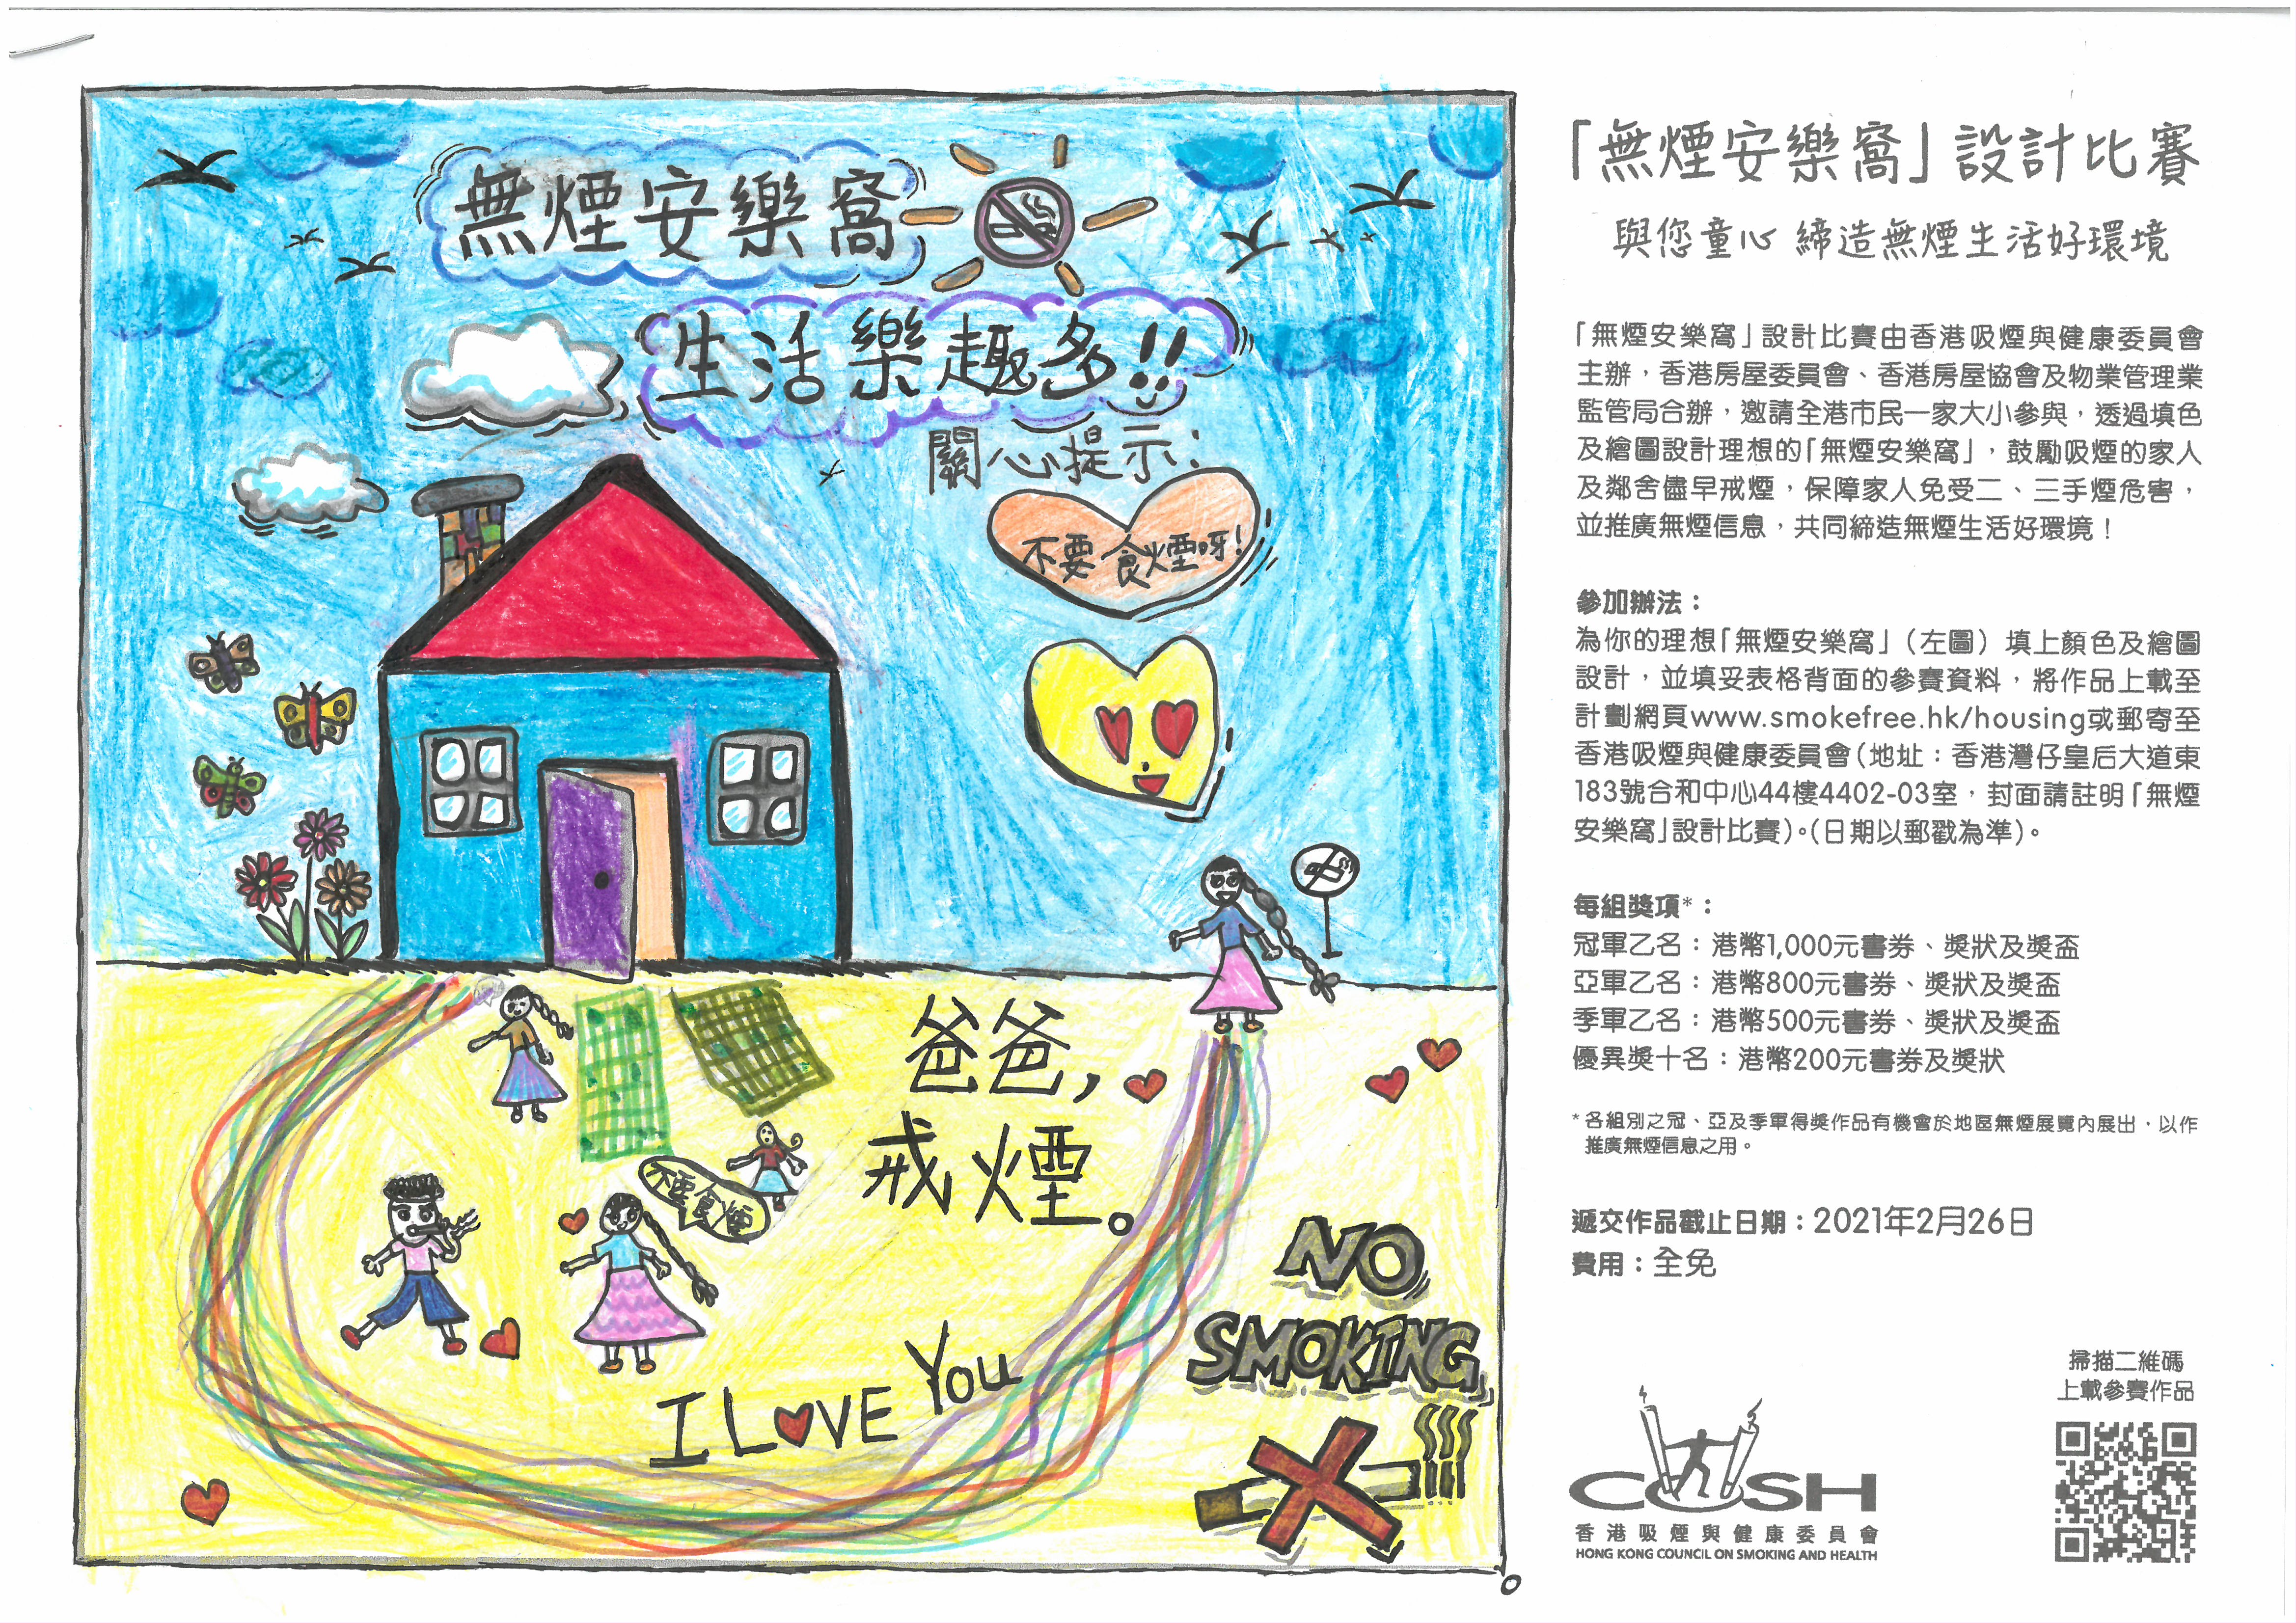 無煙安樂窩
生活樂趣多!!
關心提示:
不要食煙呀!
爸爸,
戒煙。
不要食煙
I LOVE YOU
NO
SMOKING
「無煙安樂窩」設計比賽
與您童心 締造無煙生活好環境
「無煙安樂窩」設計比賽由香港吸煙與健康委員會
主辦，香港房屋委員會、香港房屋協會及物業管理業
監管局合辦，邀請全港市民一家大小參與，透過填色
及繪圖設計理想的「無煙安樂窩」，鼓勵吸煙的家人
及鄰舍儘早戒煙，保障家人免受二、三手煙危害，
並推廣無煙信息，共同締造無煙生活好環境！
參加辦法：
為你的理想「無煙安樂窩」（左圖）填上顏色及繪圖
設計，並填妥表格背面的參賽資料，將作品上載至
計劃網頁www.smokefree.hk/housing或郵寄至
香港吸煙與健康委員會（地址：香港灣仔皇后大道東
183號合和中心44樓4402-03室，封面請註明「無煙
安樂窩」設計比賽）。（日期以郵戳為準）。
每組獎項*：
冠軍乙名：港幣1,000元書券、獎狀及獎盃
亞軍乙名：港幣800元書券、獎狀及獎盃
季軍乙名：港幣500元書券、獎狀及獎盃
優異獎十名：港幣200元書券及獎狀
* 各組別之冠、亞及季軍得獎作品有機會於地區無煙展覽內展出，以作
推廣無煙信息之用。
遞交作品截止日期：2021年2月26日
費用：全免
掃描二維碼
上載參賽作品
COSH
香港吸煙與健康委員會
HONG KONG COUNCIL ON SMOKING AND HEALTH